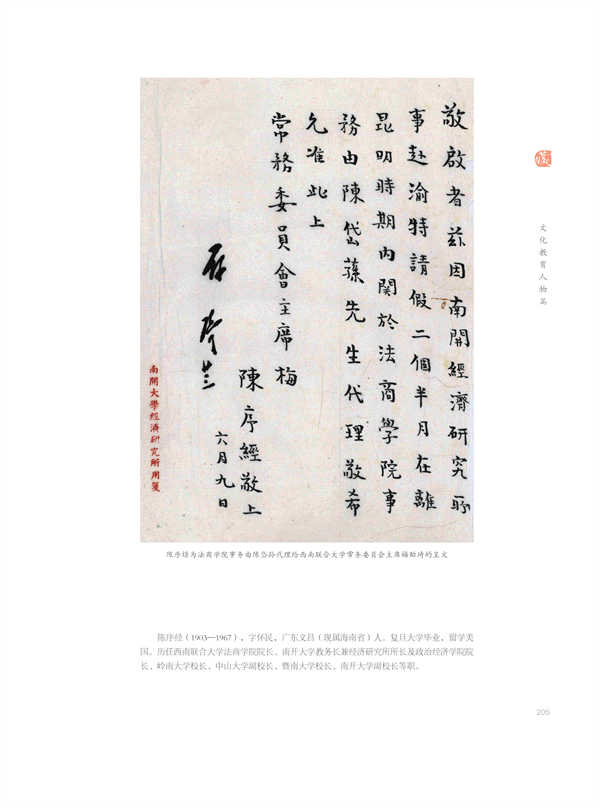 敬啟者茲因南開經濟研究所
事赴渝特請假二個半月在離
昆明時期內關於法商學院事
務由陳岱蓀先生代理敬希
允准此上
常務委員會主席梅
陳序經敬上
六月九日
南開大學經濟研究所用箋
文化教育人物篇
陈序经为法商学院事务由陈岱孙代理给西南联合大学常务委员会主席梅贻琦的呈文
陈序经（1903—1967），字怀民，广东文昌（现属海南省）人。复旦大学毕业，留学美
国。历任西南联合大学法商学院院长、南开大学教务长兼经济研究所所长及政治经济学院院
长、岭南大学校长、中山大学副校长、暨南大学校长、南开大学副校长等职。
205